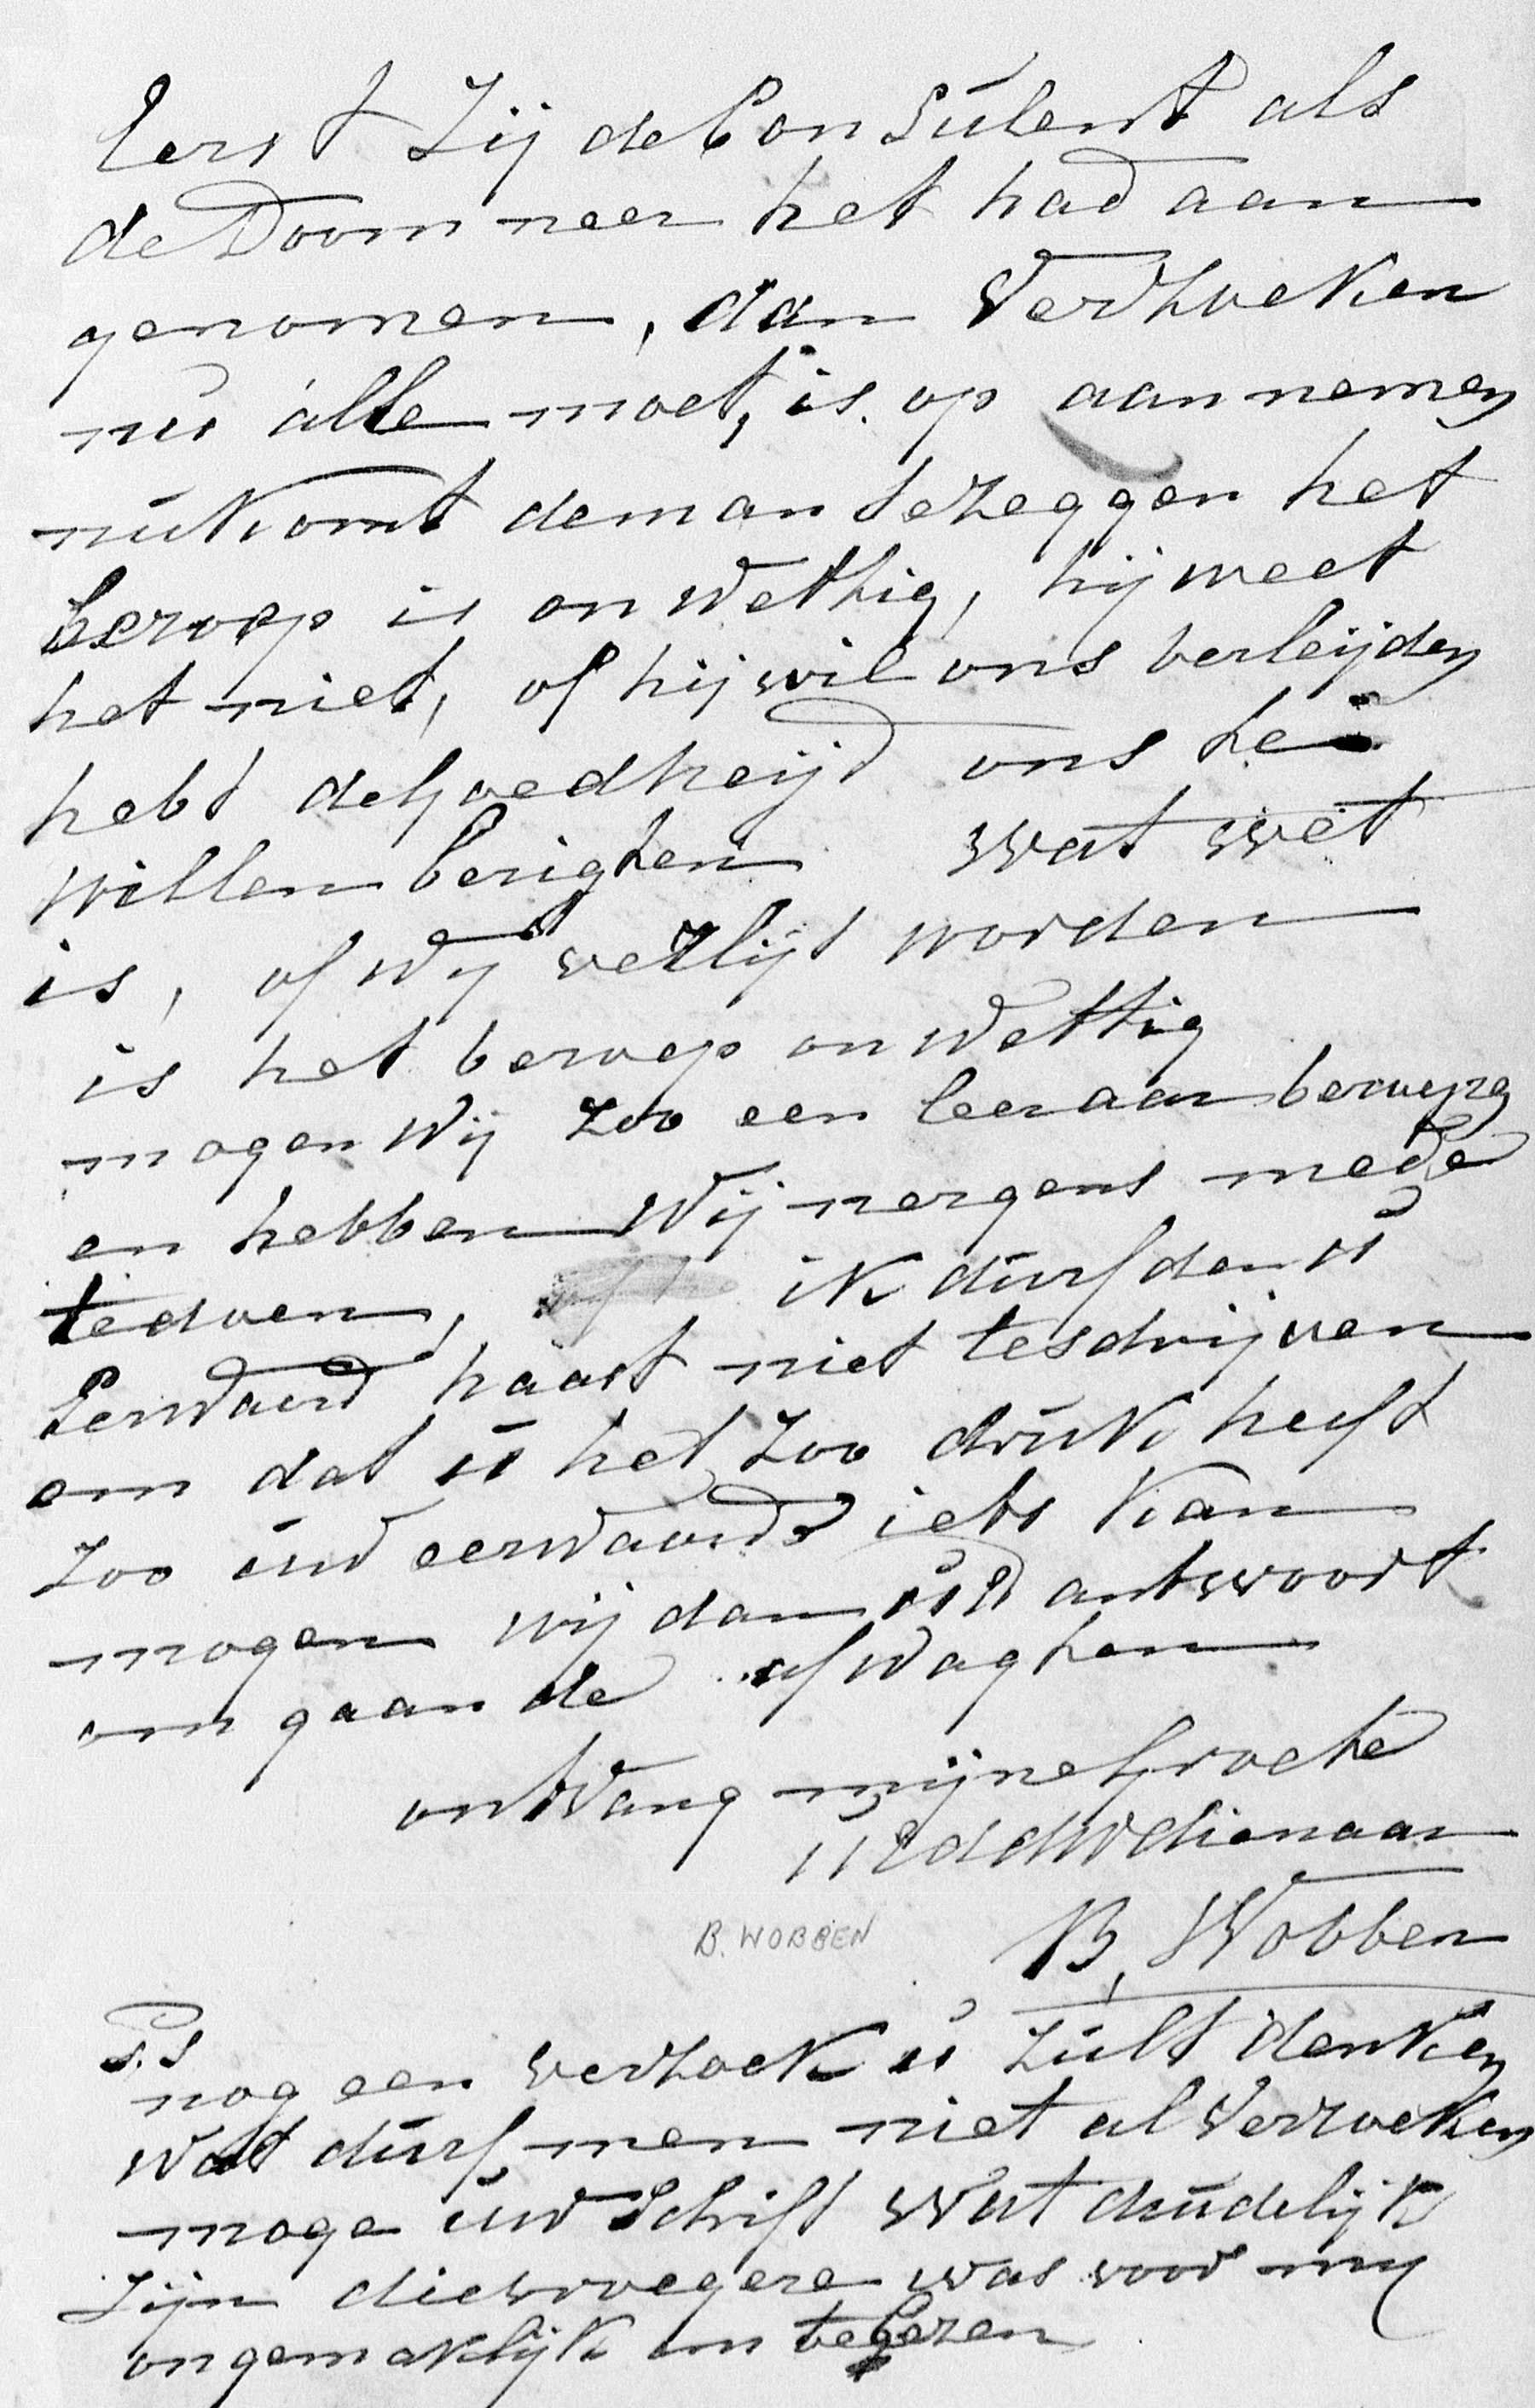 Eerst Zij de Consúlent als
de Doominee het had aan
genomen, dan Verzoeken
nú alle moet, is op aannemen
nú komt de man te zeggen het
beroep is onwettig, hij weet
het niet, of hij wil ons verleijden
hebt de Goedheijd ons te
willen berigten wat wet
is, of wij verlijt worden
is het beroep onwettig
mogen wij Zoo een leeraar beroepen
en hebben Wij nergens mede
te doen, ik dúrf den ú
Eerwaerd haast niet te schrijven
om dat ú het Zoo drúk heeft
Zoo úw eerwaarde iets kan
mogen wij dan úw antwoort
om gaande afwagten
ontvang mijne Groete
ú dienaar
B. WOBBEN
B, Wobben
P.S
nog een verzoek ú Zúlt denken
Wat dúrf men niet al Verzoeken
moge úw Schrift wat dúdelijk
Zijn die vroegere was voor my
ongemaklijk om te lezen